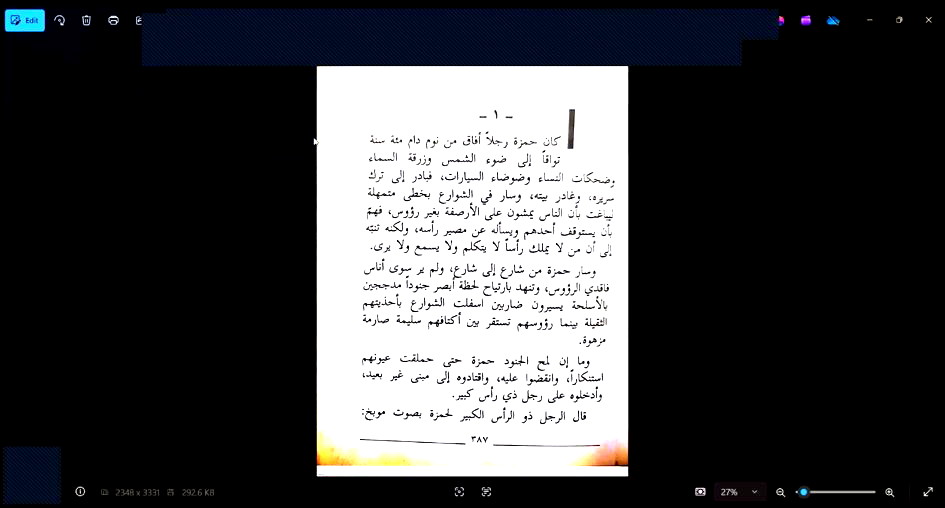 Edit
– ١ –
كان حمزة رجلاً أفاق من نوم دام مئة سنة
تواقاً إلى ضوء الشمس وزرقة السماء
وضحكات النساء وضوضاء السيارات، فبادر إلى ترك
سريره، وغادر بيته، وسار في الشوارع بخطى متمهلة
ليباغت بأن الناس يمشون على الأرصفة بغير رؤوس، فهمّ
بأن يستوقف أحدهم ويسأله عن مصير رأسه، ولكنه تنبّه
إلى أن من لا يملك رأساً لا يتكلم ولا يسمع ولا يرى.
وسار حمزة من شارع إلى شارع، ولم ير سوى أناس
فاقدي الرؤوس، وتنهد بارتياح لحظة أبصر جنوداً مدججين
بالأسلحة يسيرون ضاربين اسفلت الشوارع بأحذيتهم
الثقيلة بينما رؤوسهم تستقر بين أكتافهم سليمة صارمة
مزهوة.
وما إن لمح الجنود حمزة حتى حملقت عيونهم
استنكاراً، وانقضوا عليه، واقتادوه إلى مبنى غير بعيد،
وأدخلوه على رجل ذي رأس كبير.
قال الرجل ذو الرأس الكبير لحمزة بصوت موبخ:
٣٨٧
2348 x 3331 292.6 KB 27%